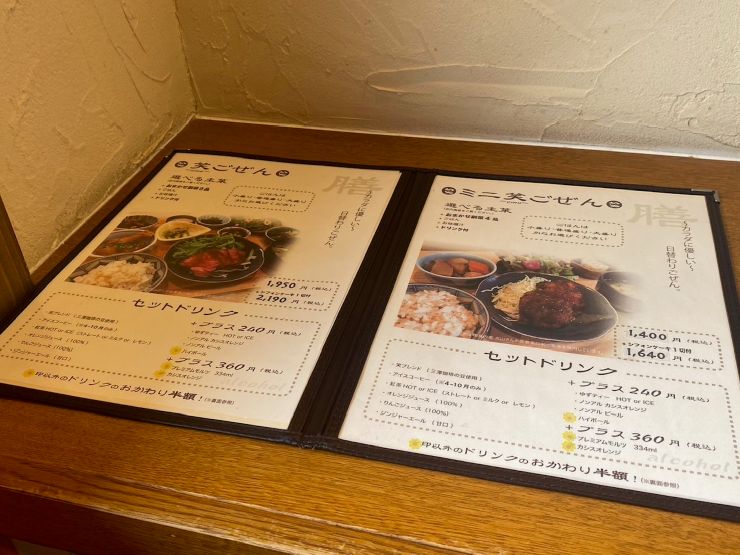 笑ごぜん
膳
〜カラダに優しい〜
日替わりごぜん。
選べる主菜
・おまかせ副菜8品
・ごはん
・お味噌汁
・ドリンク付
ごはんは
小盛り・普通盛り・大盛り
お選びください
1,950円(税込)
+シフォンケーキ1切付
2,190円(税込)
セットドリンク
・笑ブレンド(三澤珈琲の豆使用)
・アイスコーヒー(※4-10月のみ)
・紅茶 HOT or ICE(ストレート or ミルク or レモン)
・オレンジジュース(100%)
・りんごジュース(100%)
・ジンジャーエール(甘口)
+プラス260円(税込)
・ゆずティー HOT or ICE
・ノンアル カシスオレンジ
・ノンアル ビール
・ハイボール
+プラス360円(税込)
・プレミアムモルツ 334ml
・カシスオレンジ
alcohol
印以外のドリンクのおかわり半額!(※裏面参照)
ミニ笑ごぜん
膳
〜カラダに優しい〜
日替わりごぜん。
選べる主菜
・おまかせ副菜4品
・ごはん
・お味噌汁
・ドリンク付
ごはんは
小盛り・普通盛り・大盛り
お選びください
1,400円(税込)
+シフォンケーキ1切付
1,640円(税込)
セットドリンク
・笑ブレンド(三澤珈琲の豆使用)
・アイスコーヒー(※4-10月のみ)
・紅茶 HOT or ICE(ストレート or ミルク or レモン)
・オレンジジュース(100%)
・りんごジュース(100%)
・ジンジャーエール(甘口)
+プラス260円(税込)
・ゆずティー HOT or ICE
・ノンアル カシスオレンジ
・ノンアル ビール
・ハイボール
+プラス360円(税込)
・プレミアムモルツ 334ml
・カシスオレンジ
alcohol
印以外のドリンクのおかわり半額!(※裏面参照)